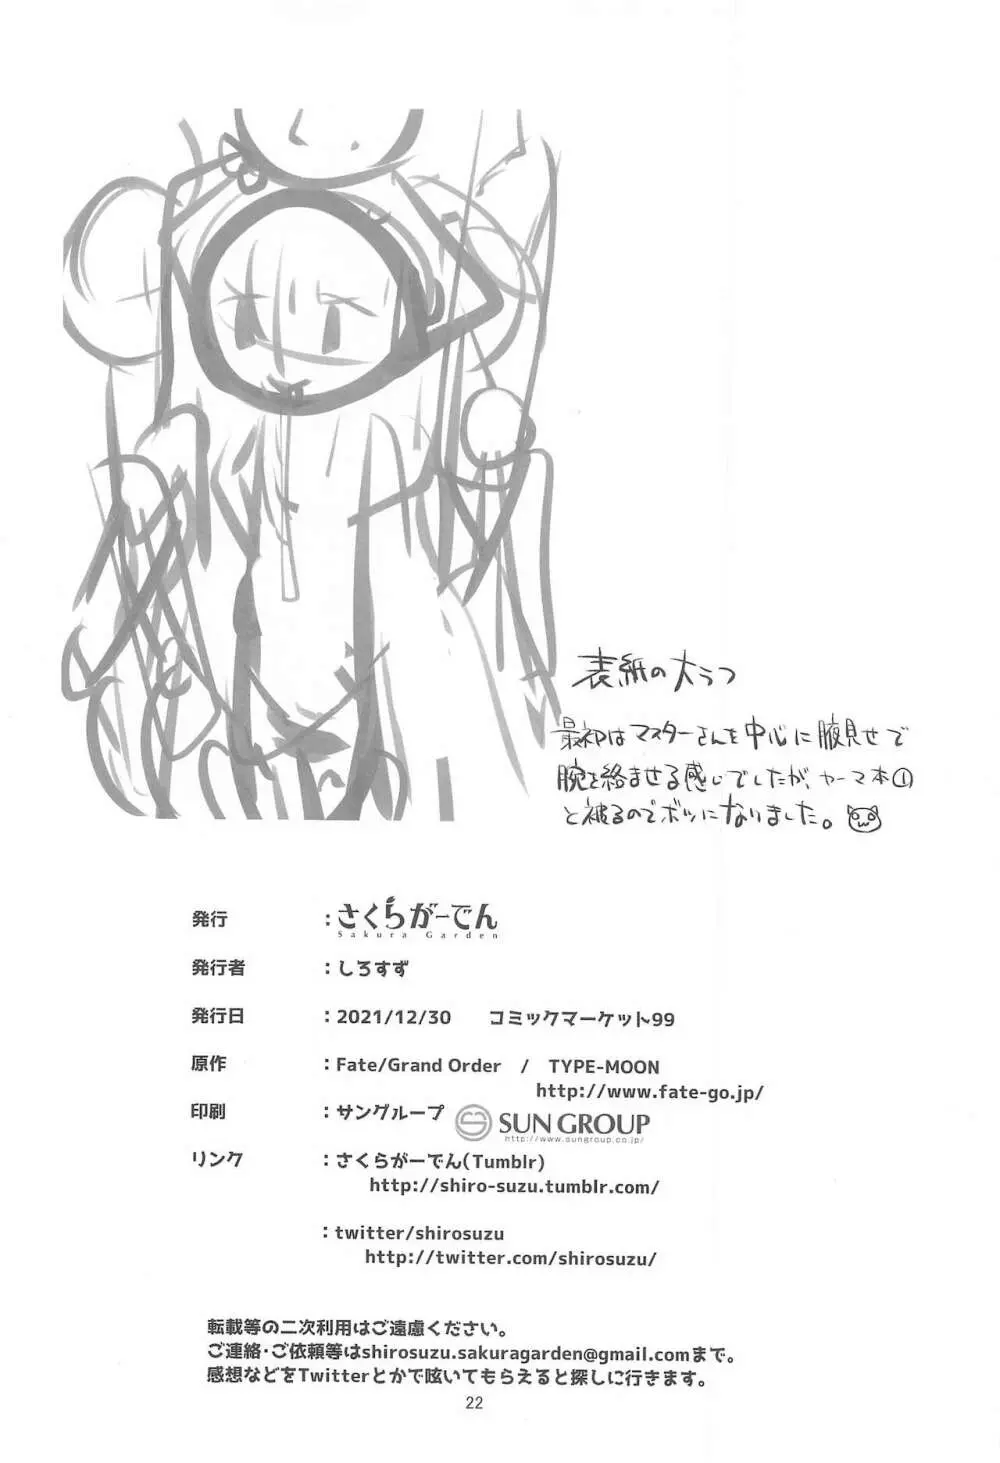 表紙の大らつ
最初はマスターさんを中心に腋見せで
腕を絡ませる感じでしたが、ヤーマ本①
と被るのでボツになりました。
発行 : さくらがーでん
Sakura Garden
発行者 : しろすず
発行日 : 2021/12/30 コミックマーケット99
原作 : Fate/Grand Order / TYPE-MOON
http://www.fate-go.jp/
印刷 : サングループ SUN GROUP
http://www.sungroup.co.jp/
リンク : さくらがーでん(Tumblr)
http://shiro-suzu.tumblr.com/
: twitter/shirosuzu
http://twitter.com/shirosuzu/
転載等の二次利用はご遠慮ください。
ご連絡・ご依頼等はshirosuzu.sakuragarden@gmail.comまで。
感想などをTwitterとかで呟いてもらえると探しに行きます。
22